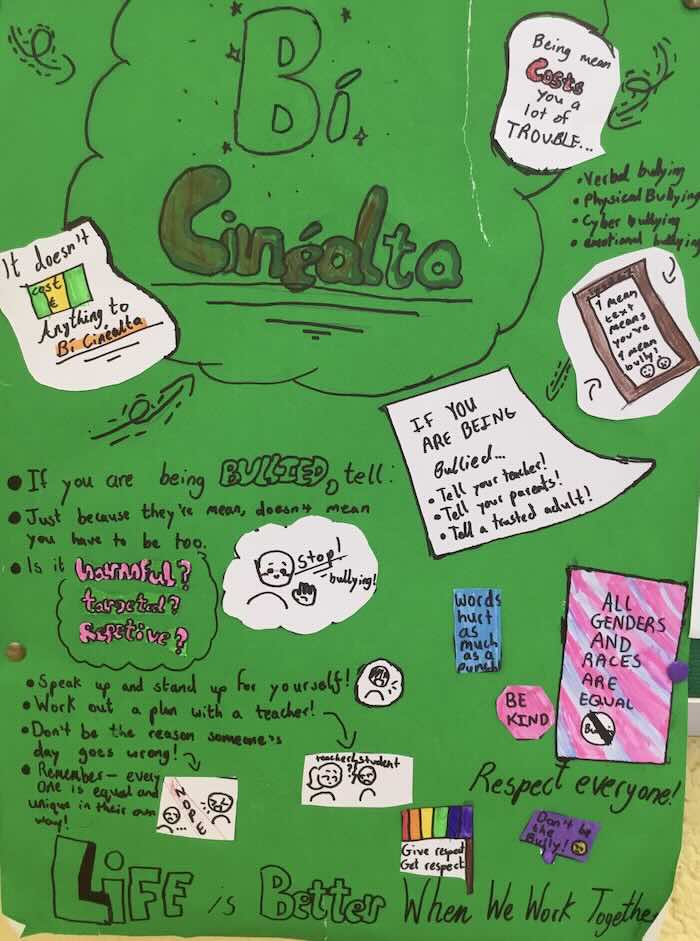 Bí
Cinéalta
Being mean
Costs
you a
lot of
TROUBLE...
• Verbal bullying
• Physical Bullying
• Cyber bullying
• emotional bullying
It doesn't
cost
€
Anything to
Bí Cinéalta
1 mean
text
means
you're
1 mean
bully!
IF YOU
ARE BEING
Bullied...
• Tell your teacher!
• Tell your parents!
• Tell a trusted adult!
• If you are being BULLIED, tell:
• Just because they're mean, doesn't mean
you have to be too.
• Is it harmful?
targeted?
Repetive?
stop!
bullying!
words
hurt
as
much
as a
punch
ALL
GENDERS
AND
RACES
ARE
EQUAL
BE
KIND
• Speak up and stand up for yourself!
• Work out a plan with a teacher!
• Don't be the reason someone's
day goes wrong!
• Remember – every
one is equal and
unique in their own
way!
NOPE
teacher student
?!
Respect everyone!
Give respect
Get respect
Don't be
the
Bully!
LiFE is Better When We Work Together